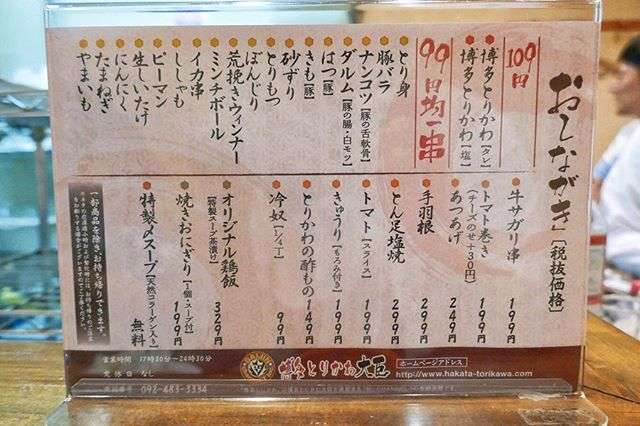 おしながき［税抜価格］
100円
博多とりかわ［タレ］
博多とりかわ［塩］
99円均一串
とり身
豚バラ
ナンコツ［豚の舌軟骨］
ダルム［豚の腸・白モツ］
はつ［豚］
きも［豚］
砂ずり
とりもつ
ぼんじり
荒挽きウィンナー
ミンチボール
イカ串
ししゃも
ピーマン
生しいたけ
にんにく
たまねぎ
やまいも
牛サガリ串 199円
トマト巻き 199円
（チーズのせ+30円）
あつあげ 249円
手羽根 299円
とん足塩焼 299円
トマト［スライス］ 199円
きゅうり［もろみ付き］ 199円
とりかわの酢もの 149円
冷奴［1/4丁］ 99円
オリジナル鶏飯 329円
［特製スープ茶漬け］
焼きおにぎり［1個・スープ付］ 199円
特製〆スープ［天然コラーゲン入り］ 無料
一部商品を除きお持ち帰りできます。
営業時間 17時30分〜24時30分
定休日 なし
092-483-3334
とりかわ大臣
ホームページアドレス
http://www.hakata-torikawa.com